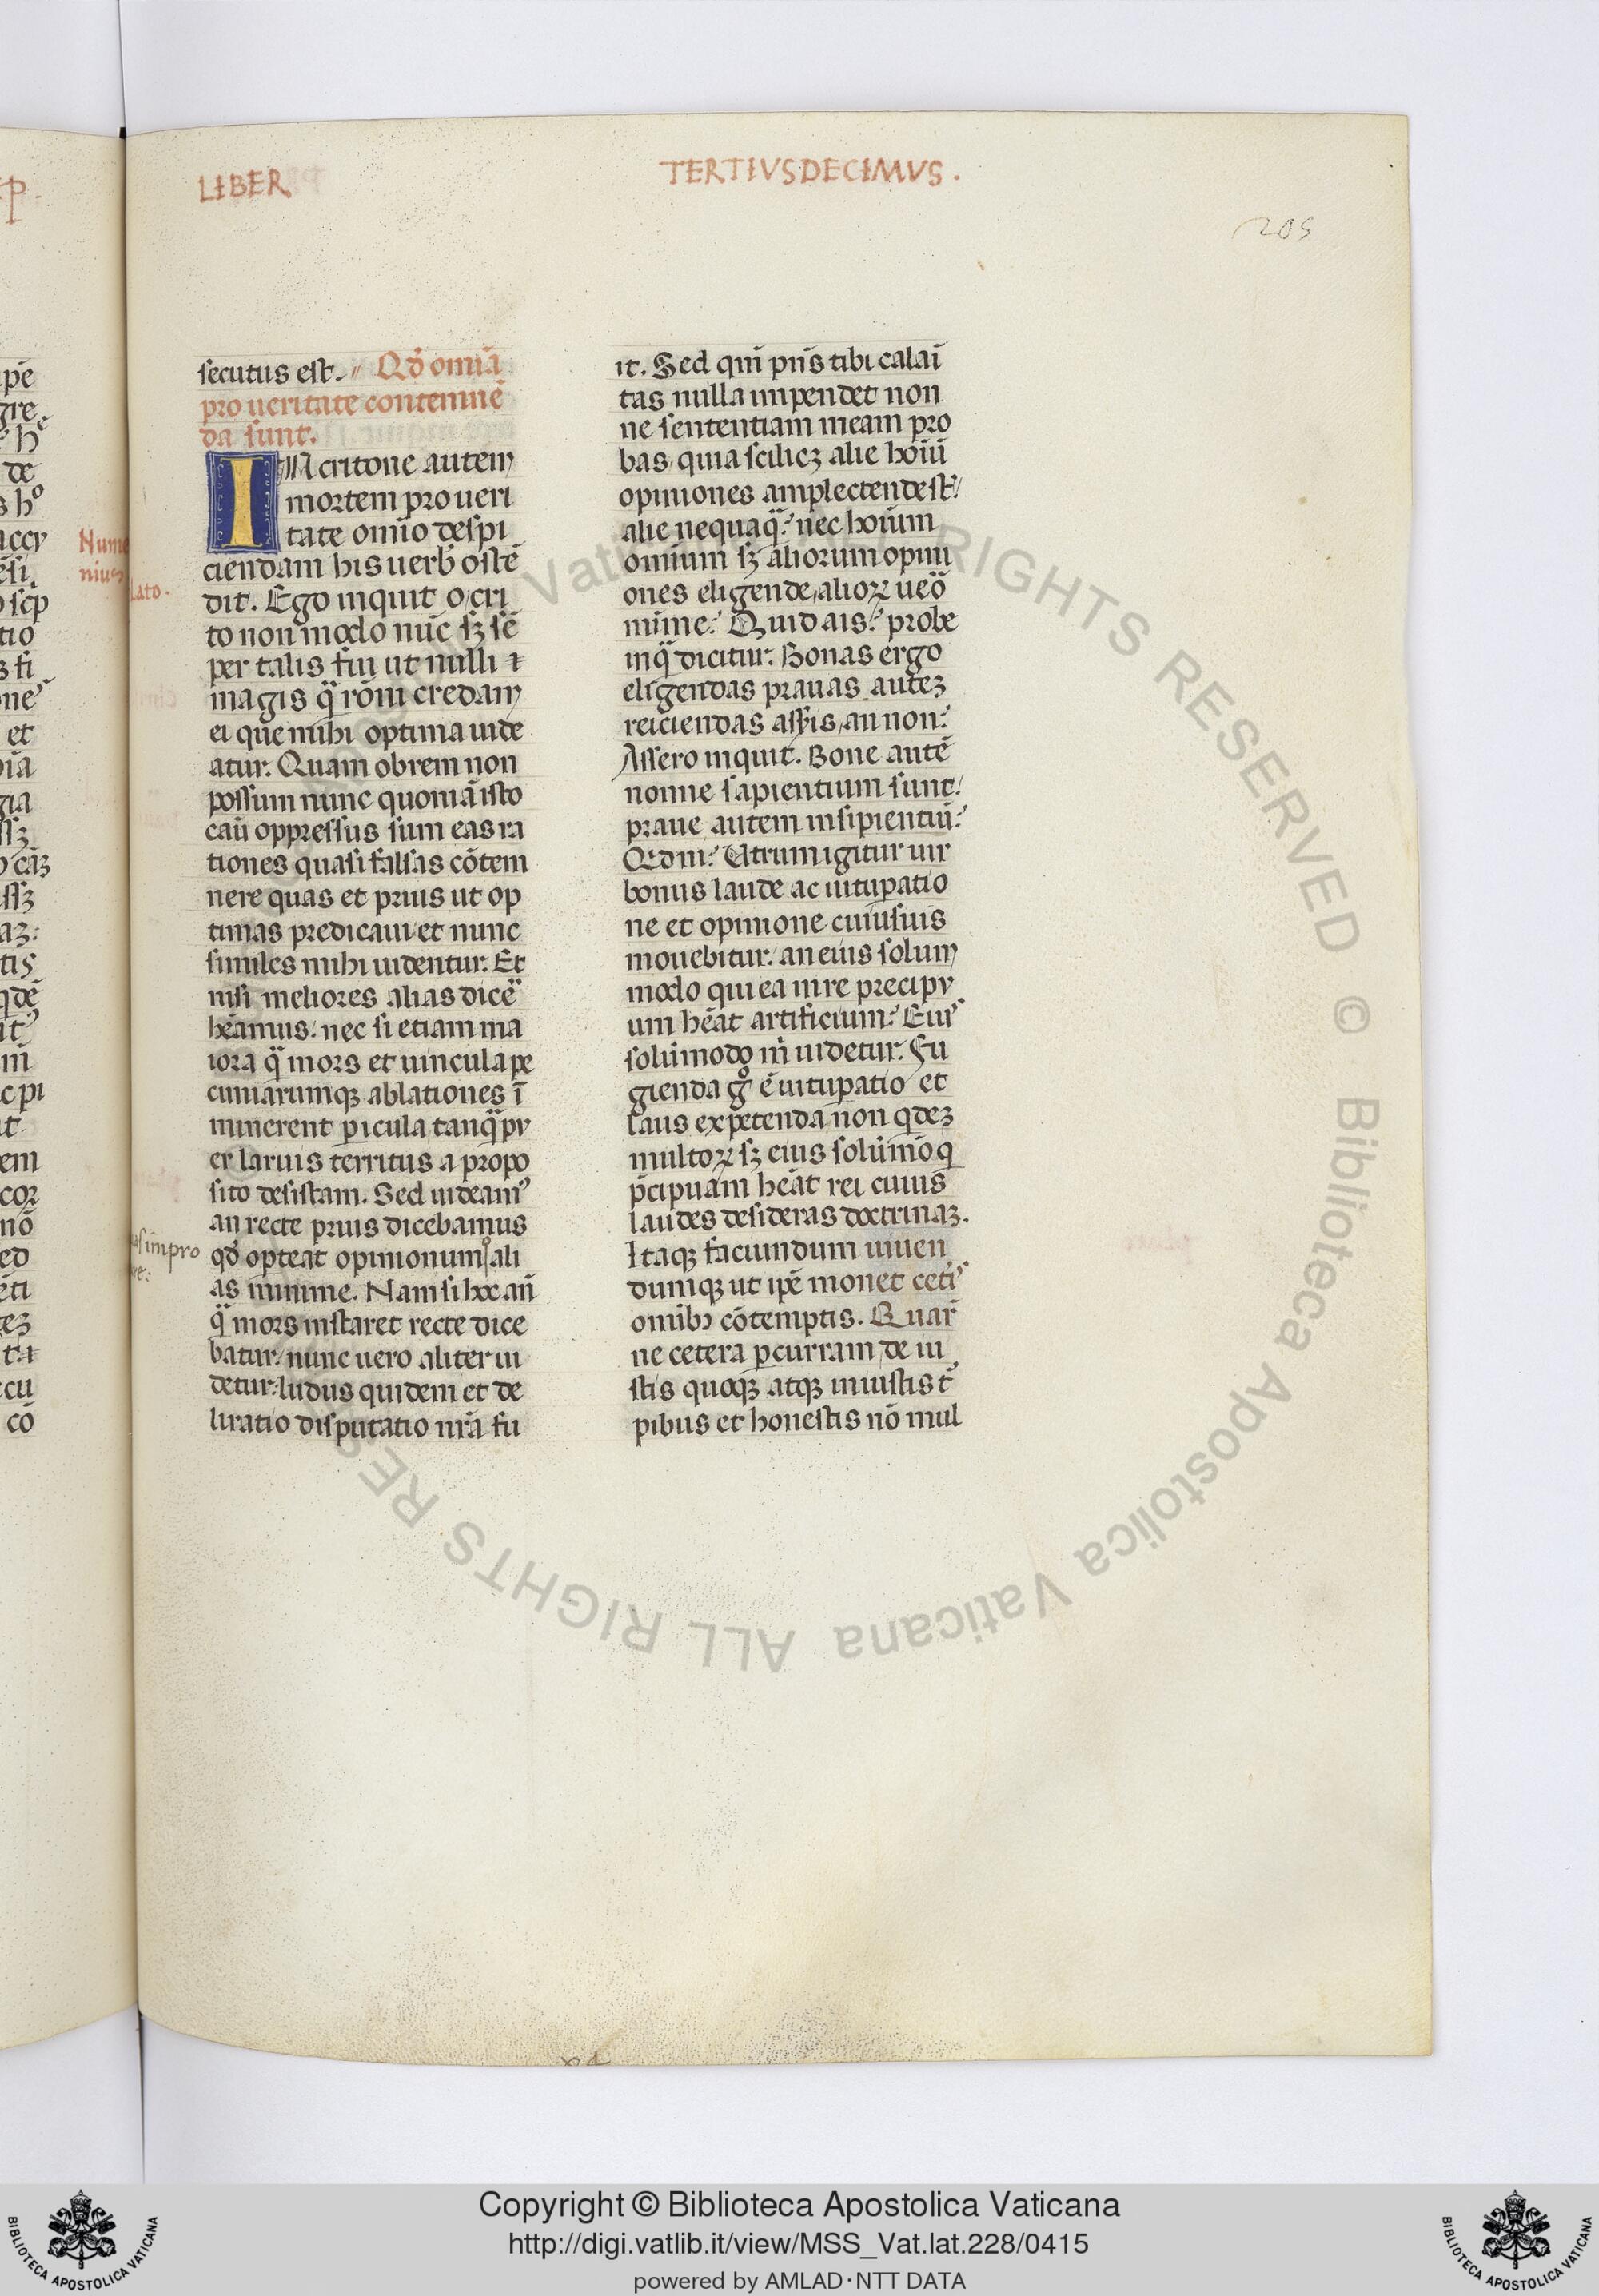 LIBER
TERTIVSDECIMVS.
205
secutus est. Qđ omīa
pro ueritate contemnē
da sunt.
IN critone autem
mortem pro ueri
tate omīo despi
ciendam his uerb ostē
dit. Ego inquit o cri
to non modo nūc sꝫ sē
per talis fui ut nulli
magis q̈ rōni credam
ei que mihi optima uide
atur. Quam obrem non
possum nunc quoniā isto
cāu oppressus sum eas ra
tiones quasi falsas cōtem
nere quas et prius ut op
timas predicaui et nunc
similes mihi uidentur. Et
nisi meliores alias dice
heamus. nec si etiam ma
iora q̈ mors et uincula pe
cuniarumqꝫ ablationes ī
minerent picula tanq̈ pu
er laruis territus a propo
sito desistam. Sed uideam9
an recte prius dicebamus
qđ opteat opinionum ali
as minime. Nam si hoc an̄
q̈ mors instaret recte dice
batur. nunc uero aliter ui
detur. ludus quidem et de
liratio disputatio nr̄a fu
it. Sed qm̄ pn̄s tibi calai
tas nulla impendet non
ne sententiam meam pro
bas quia scilicꝫ alie hoīū
opiniones amplectende st̄
alie nequaq̈. nec hoīum
omnium sꝫ aliorum opini
ones eligende, alioꝝ ueo
mīme. Quid ais. probe
inq̄ dicitur. Bonas ergo
eligendas prauas auteꝫ
reiciendas assis, an non.
Assero inquit. Bone autē
nonne sapientium sunt.
praue autem insipientiū.
Qđ ni. Utrum igitur uir
bonus laude ac uitupatio
ne et opinione cuiusuis
mouebitur. an eius solum
modo qui ea in re precipu
um heat artificium. Eius
solūmodo m̄ uidetur. Fu
gienda gͦ ē uitupatio et
laus expetenda non qdeꝫ
multoꝝ sꝫ eius solūmō q
pcipuam heat rei cuius
laudes desideras doctrinaꝫ.
Itaqꝫ faciundum uiuen
dumqꝫ ut ipē monet cetis
omībꝫ cōtemptis. Quar
ne cetera pcurram, de iu
stis quoqꝫ atqꝫ iniustis t̄
pibus et honestis nō mul
Copyright © Biblioteca Apostolica Vaticana
http://digi.vatlib.it/view/MSS_Vat.lat.228/0415
powered by AMLAD·NTT DATA
BIBLIOTECA APOSTOLICA VATICANA
BIBLIOTECA APOSTOLICA VATICANA